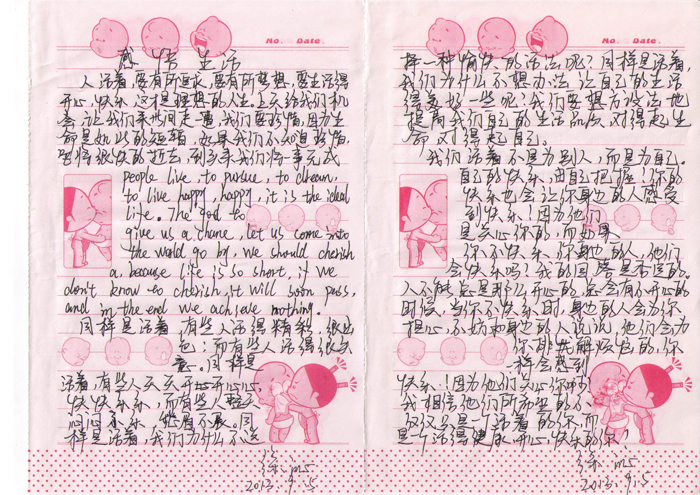 No. Date.
感悟生活
人活着,要有所追求,要有所梦想,要生活得
开心,快乐,这才是理想的人生。上天给我们机
会,让我们来世间走一遭,我们要珍惜,因为生
命是如此的短暂,如果我们不知道珍惜,
它将很快的逝去,到头来我们将一事无成
people live, to pursue, to dream,
to live happy, happy, it is the ideal
life. The god to
give us a chane, let us come into
the world go by, we should cherish
a, because life is so short, if we
don't know to cherish, it will soon pass,
and in the end we achieve nothing.
同样是活着,有些人活得精彩,很出
色;而有些人活得很失
意。同样是
活着,有些人天天开心开心,
快快乐乐,而有些人整天
闷闷不乐,愁眉不展。同
样是活着,我们为什么不选
徐
2013.9.5
No. Date.
择一种愉快的活法呢?同样是活着,
我们为什么不想办法让自己的生活
得美好一些呢?我们要想方设法地
提高我们自己的生活品质,对得起生
命,对得起自己。
我们活着不是为别人,而是为自己。
自己的快乐,由自己把握!你的
快乐也会让你身边的人感受
到快乐!因为他们
是关心你的,而如果
你不快乐,你身边的人,他们
会快乐吗?我的回答是否定的。
人不能总是那么开心的,总会有不开心的
时候,当你不快乐时,身边的人会为你
担心,不妨和身边的人说说,他们会为
你排忧解烦恼的,你
一样会感到
快乐!因为他们关心你啊!
我相信他们所希望的不
仅仅只是一个活着的你,而
是个活得健康、开心、快乐的你!
徐
2013.9.5